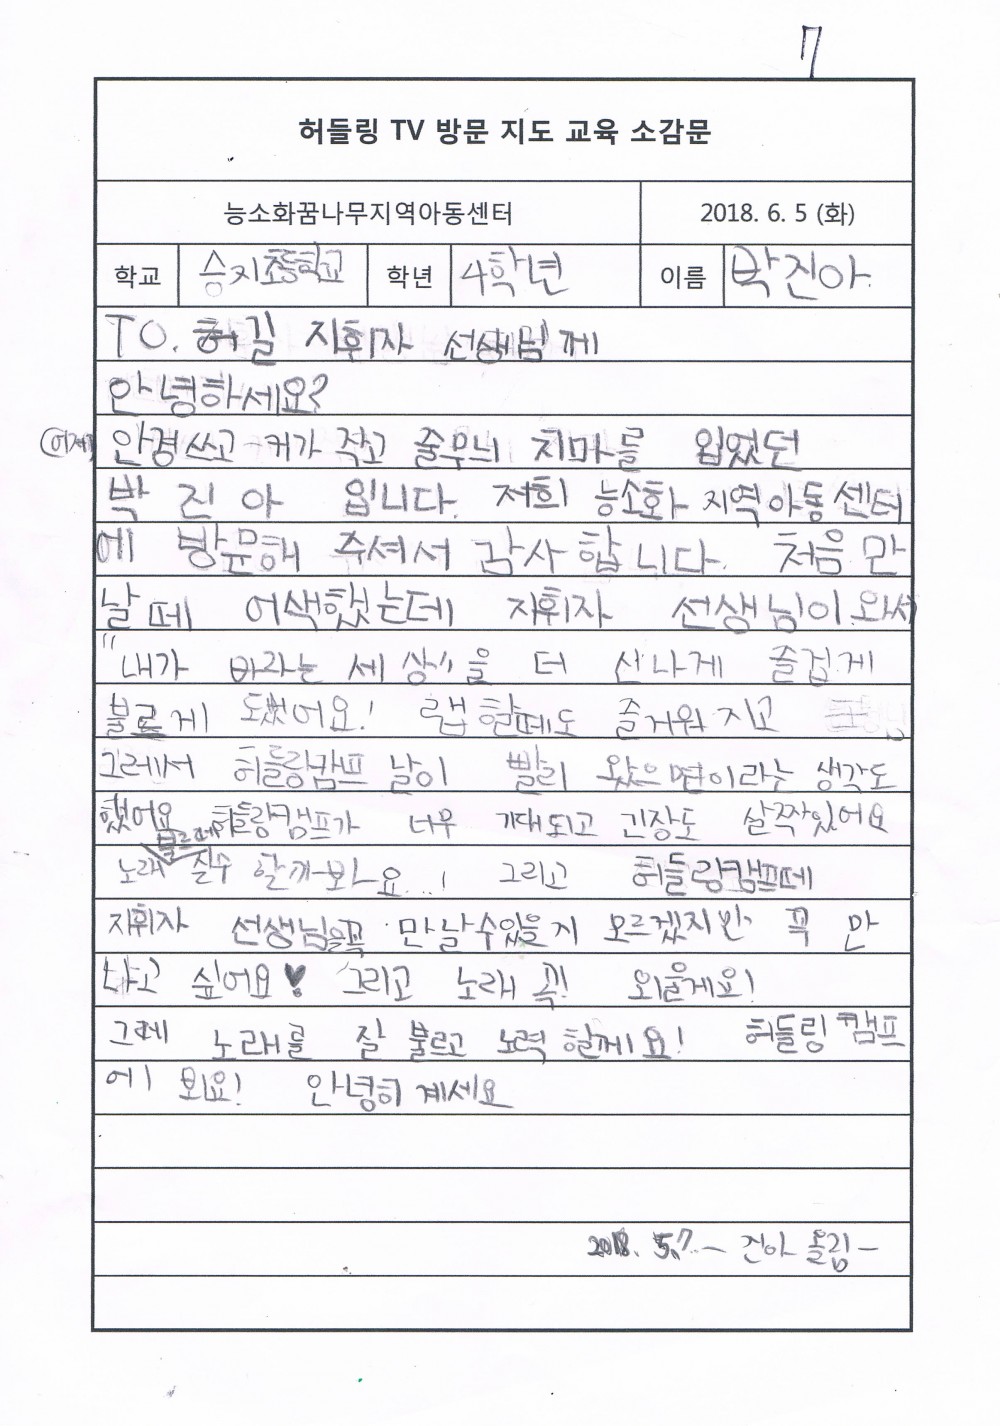 7
허들링 TV 방문 지도 교육 소감문
능소화꿈나무지역아동센터 2018. 6. 5 (화)
학교 승지초등학교 학년 4학년 이름 박진아
TO. 허길 지휘자 선생님께
안녕하세요?
어제 안경쓰고 커가 작고 줄무늬 치마를 입었던
박 진 아 입니다. 저희 능소화 지역아동센터
에 방문해 주셔서 감사합니다. 처음 만
날 때 어색했는데 지휘자 선생님이 와서
"내가 바라는 세상"을 더 신나게 즐겁게
불르게 됬었어요! 랩 할때도 즐거워 지고
그레서 허들링캄프 날이 빨리 왔으면이라는 생각도
했어요 허들링캠프가 너무 기대되고 긴장도 살짝있어요
노래 부르때 실수 할까봐요...! 그리고 허들링캠프때
지휘자 선생님을꼭 만날수있을지 모르겠지만 꼭 만
나고 싶어요♥ 그리고 노래 꼭! 외울게요!
그때 노래를 잘 불르고 노력 할께요! 허들링캠프
에 뵈요! 안녕히 계세요
2018. 5.7. ㅡ 진아 올림ㅡ